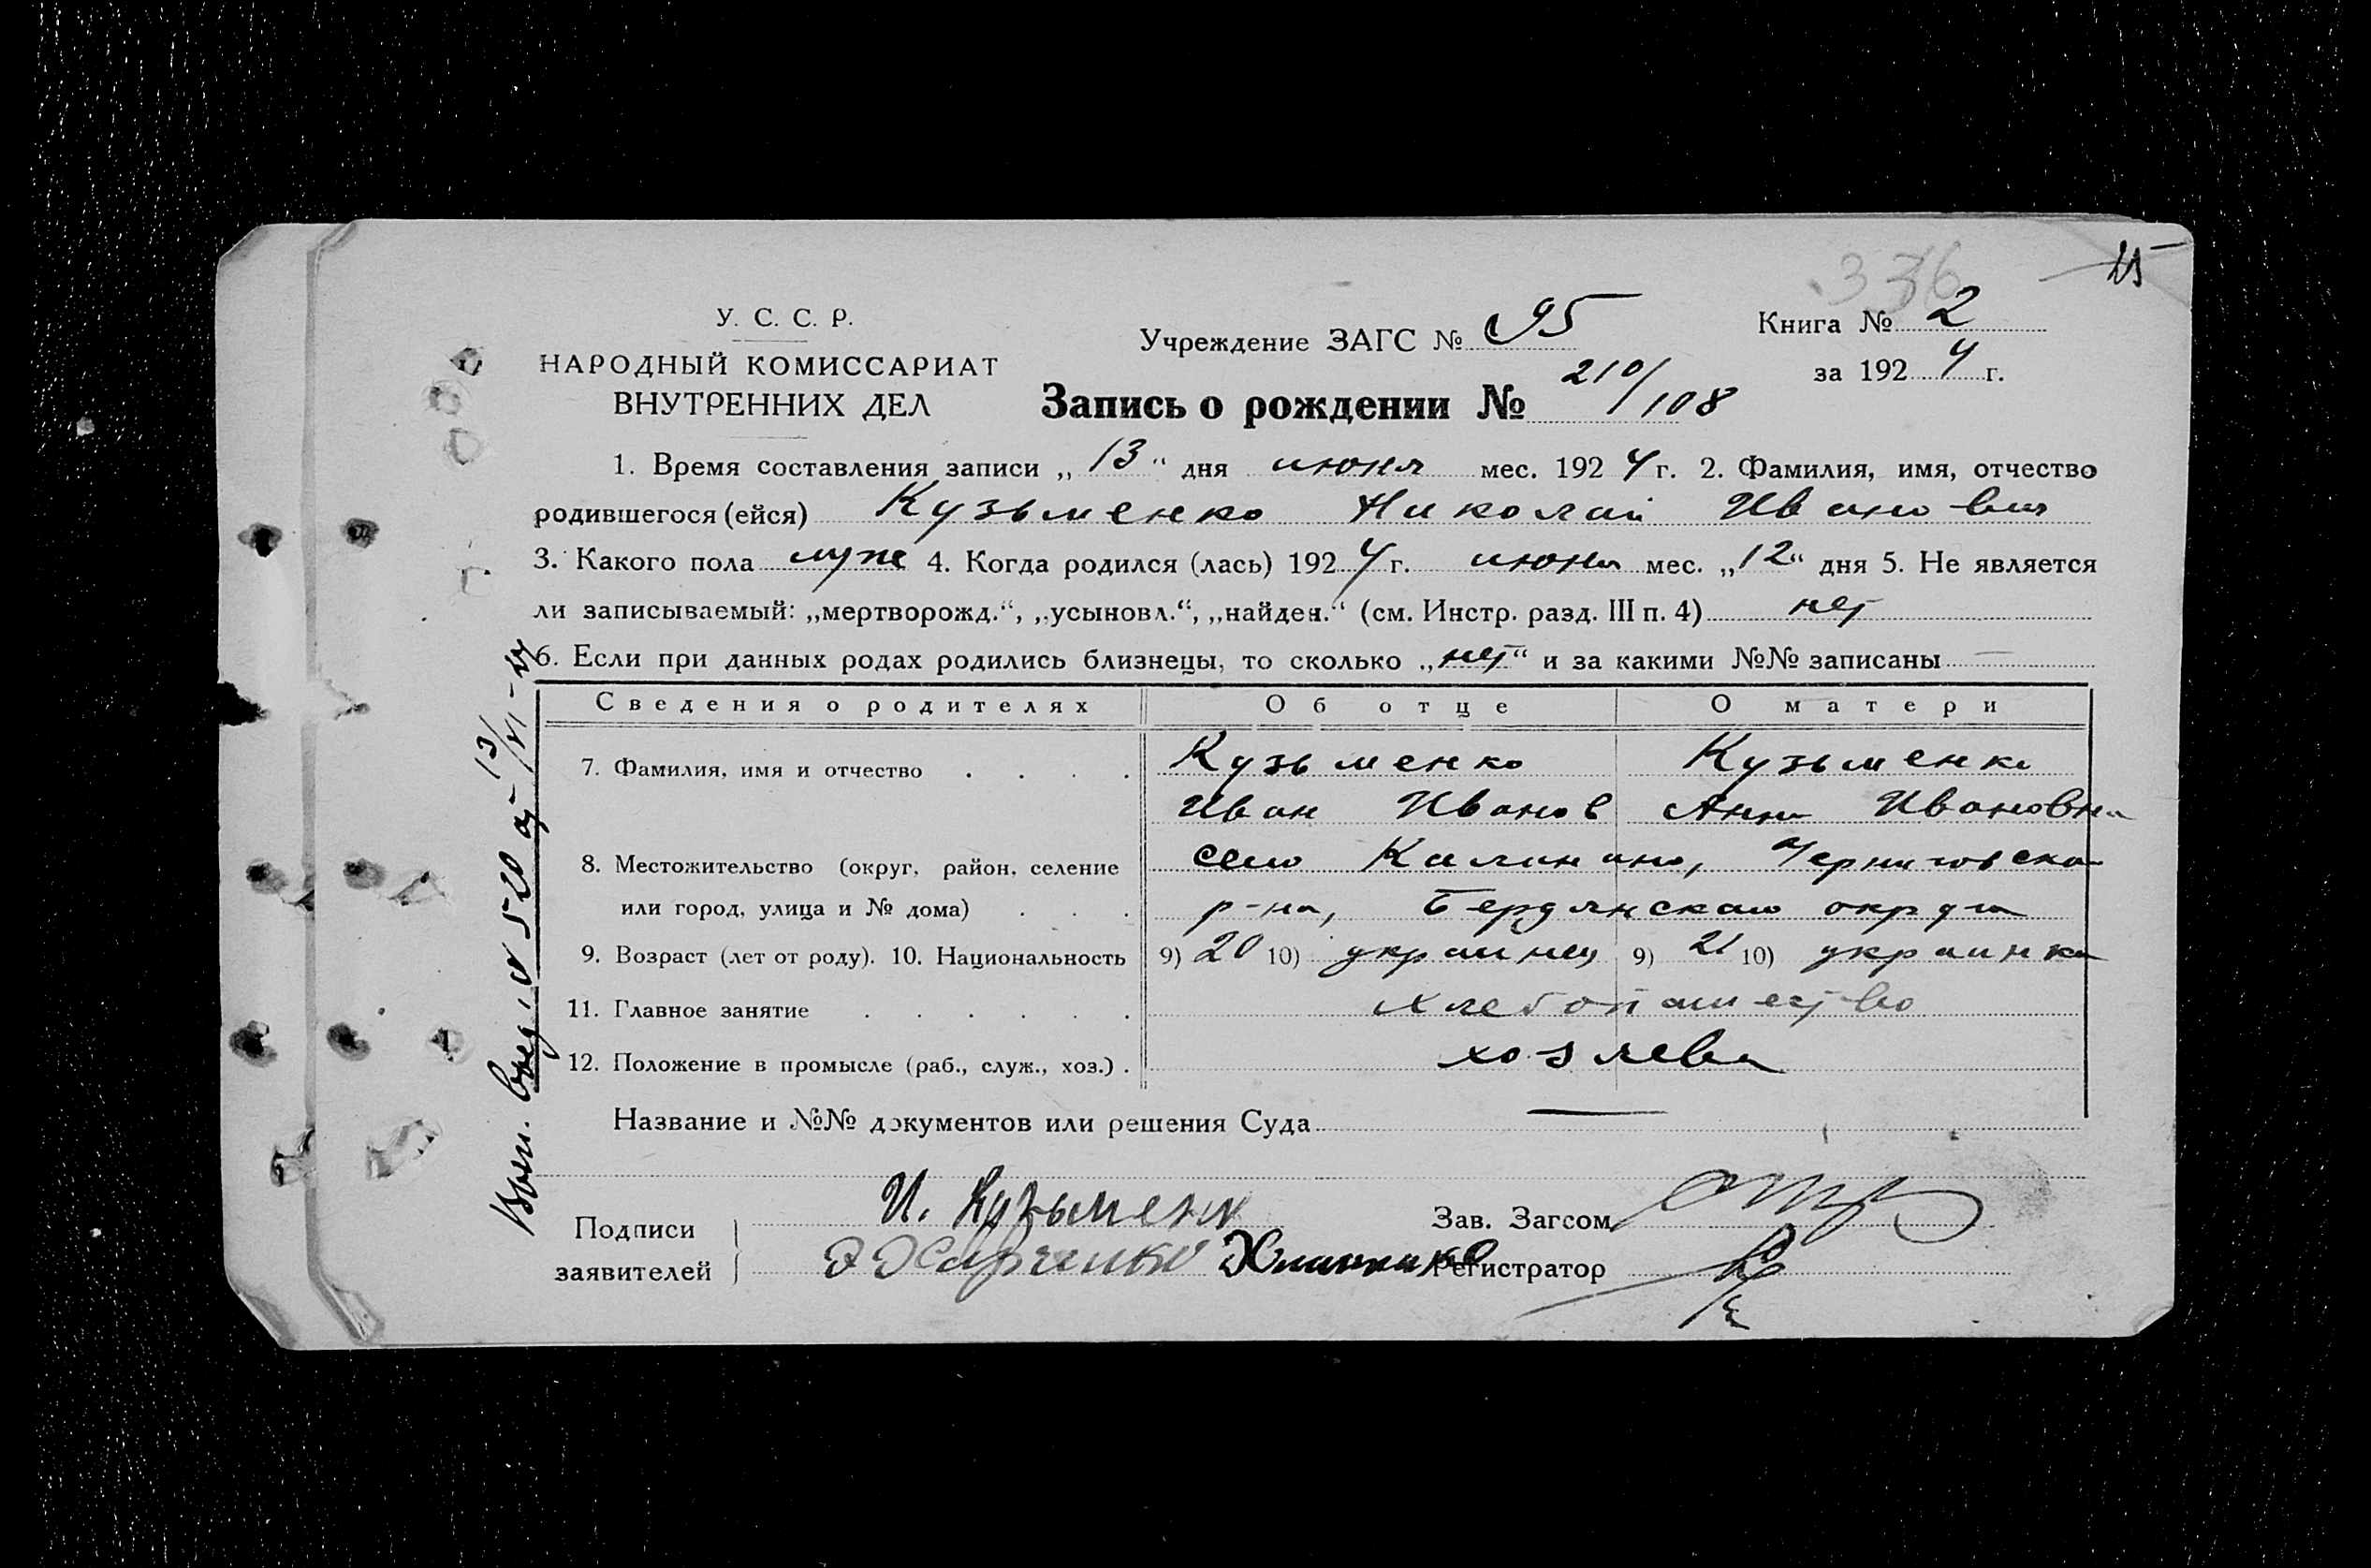 336
15
У. С. С. Р.
НАРОДНЫЙ КОМИССАРИАТ
ВНУТРЕННИХ ДЕЛ
Учреждение ЗАГС № 95
Книга № 2
за 1924 г.
Запись о рождении № 210/108
1. Время составления записи „13“ дня июня мес. 1924 г. 2. Фамилия, имя, отчество
родившегося (ейся) Кузьменко Николай Иванович
3. Какого пола муж 4. Когда родился (лась) 1924 г. июня мес. „12“ дня 5. Не является
ли записываемый: „мертворожд.“, „усыновл.“, „найден.“ (см. Инстр. разд. III п. 4) нет
6. Если при данных родах родились близнецы, то сколько „нет“ и за какими №№ записаны —
Сведения о родителях Об отце О матери
7. Фамилия, имя и отчество . . . . Кузьменко Кузьменко
Иван Иванов Анна Ивановна
8. Местожительство (округ, район, селение село Калинино, Черниговска
или город, улица и № дома) . . . р-на, Бердянскаго округа
9. Возраст (лет от роду). 10. Национальность 9) 20 10) украинец 9) 21 10) украинка
11. Главное занятие . . . . . . хлебопашество
12. Положение в промысле (раб., служ., хоз.) . хозяева
Название и №№ документов или решения Суда —
Подписи
заявителей
И. Кузьменк
Харченко
Зав. Загсом
Регистратор
№ 520 от 13/VI-24